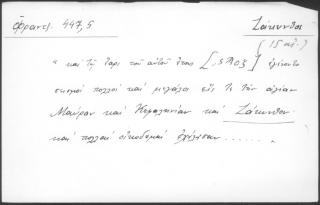 φραντζ. 447,5 Ζάκυνθος
(15 αἰ.)
“ καὶ τῇ ἔαρι τοῦ αὐτοῦ ἔτους [͵ςϡοζ] ἐγένοντο
σεισμοὶ πολλοὶ καὶ μεγάλοι εἴς τε τὴν ἁγίαν
Μαύραν καὶ Κεφαλωνίαν καὶ Ζάκυνθον
καὶ πολλαὶ οἰκοδομαὶ ἐχάλασαν ......„